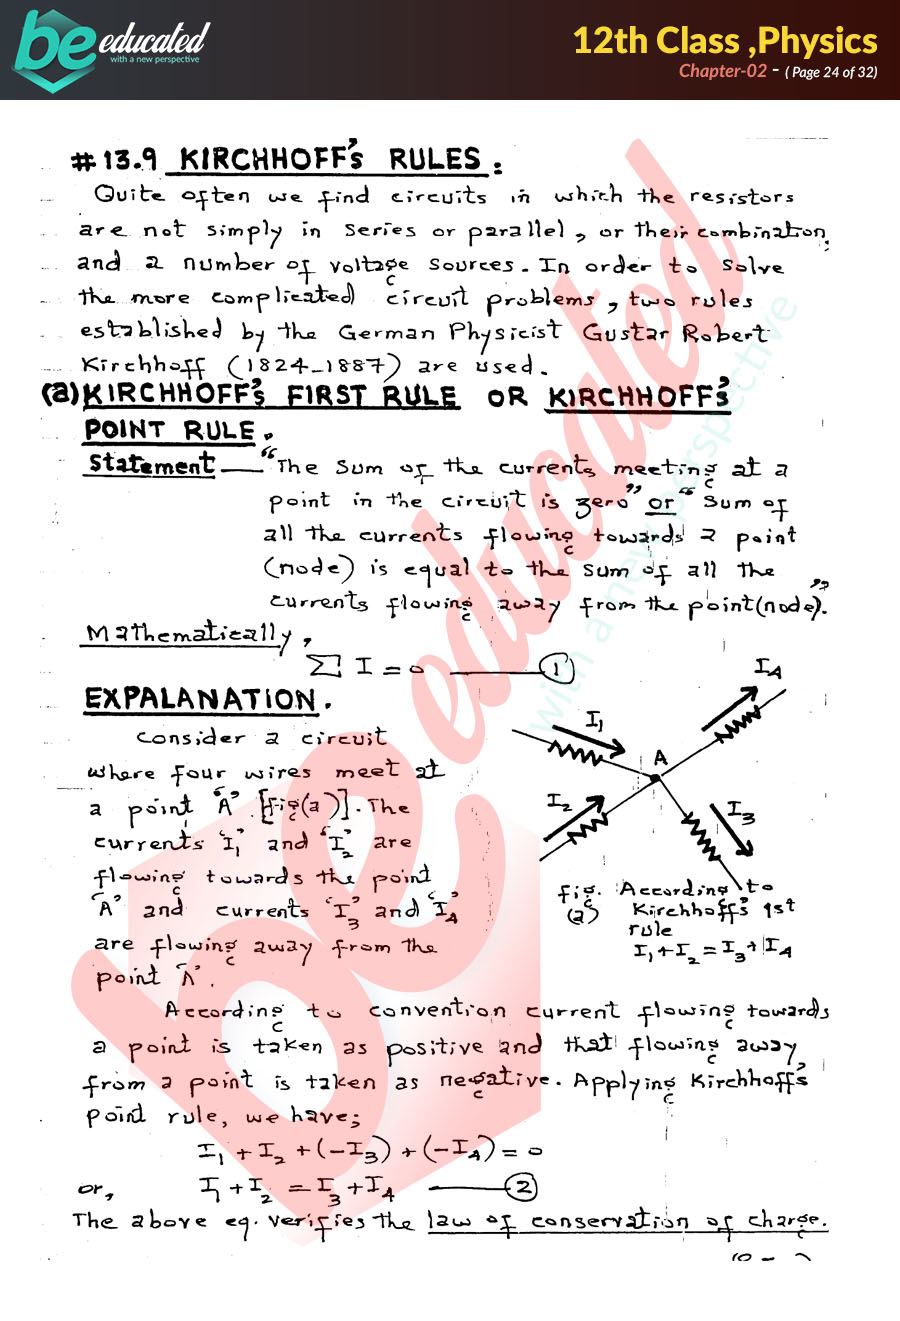 be educated
with a new perspective
12th Class ,Physics
Chapter-02 - ( Page 24 of 32)
# 13.9 KIRCHHOFF's RULES :
Quite often we find circuits in which the resistors
are not simply in series or parallel, or their combination,
and a number of voltage sources. In order to solve
the more complicated circuit problems, two rules
established by the German Physicist Gustar Robert
Kirchhoff (1824-1887) are used.
(a) KIRCHHOFF's FIRST RULE OR KIRCHHOFF's
POINT RULE.
Statement — "The sum of the currents meeting at a
point in the circuit is zero" or "Sum of
all the currents flowing towards a point
(node) is equal to the sum of all the
currents flowing away from the point (node)."
Mathematically,
∑ I = 0 — ①
EXPALANATION.
Consider a circuit
where four wires meet at
a point 'A' [fig(a)]. The
currents 'I₁' and 'I₂' are
flowing towards the point
'A' and currents 'I₃' and 'I₄'
are flowing away from the
point 'A'.
I₁
I₄
A
I₂
I₃
fig. According to
(a) Kirchhoff's 1st
rule
I₁+I₂=I₃+I₄
According to convention current flowing towards
a point is taken as positive and that flowing away
from a point is taken as negative. Applying Kirchhoff's
point rule, we have;
I₁ + I₂ + (-I₃) + (-I₄) = 0
or, I₁ + I₂ = I₃ + I₄ — ②
The above eq. verifies the law of conservation of charge.
be educated
with a new perspective